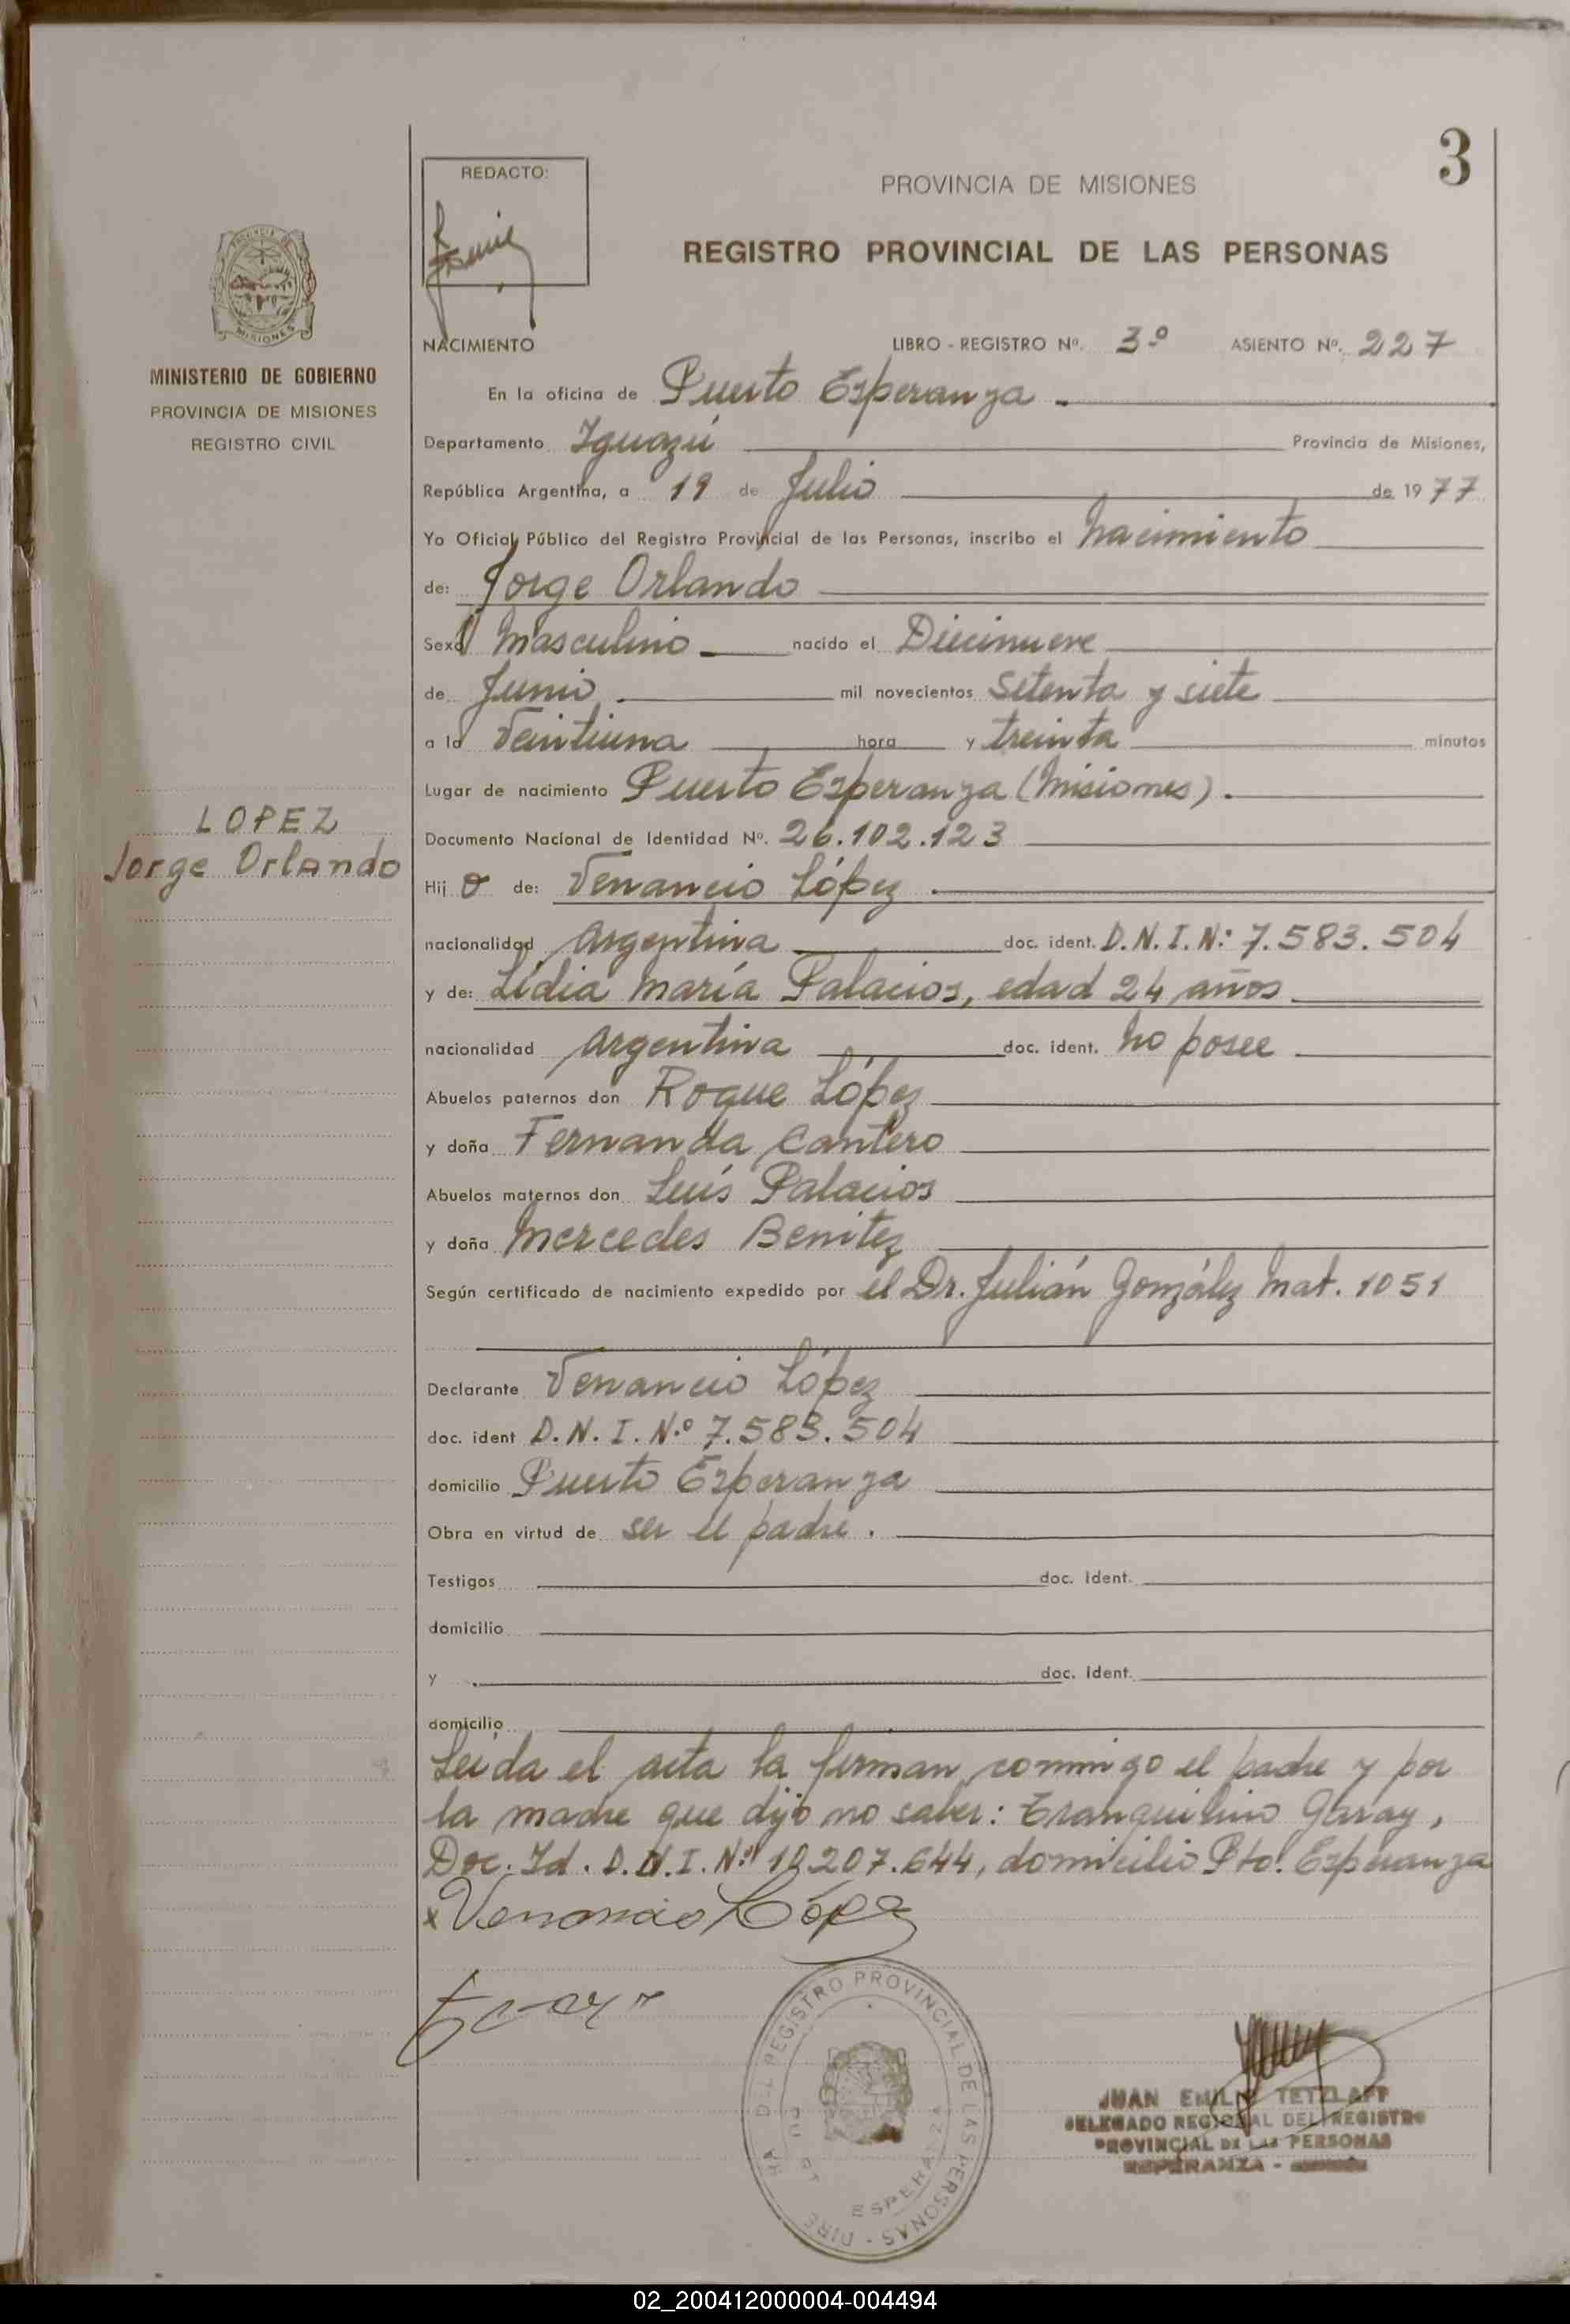 3
REDACTO:
PROVINCIA DE MISIONES
REGISTRO PROVINCIAL DE LAS PERSONAS
PROVINCIA DE
MISIONES
MINISTERIO DE GOBIERNO
PROVINCIA DE MISIONES
REGISTRO CIVIL
NACIMIENTO LIBRO - REGISTRO Nº. 3º ASIENTO Nº. 227
En la oficina de Puerto Esperanza
Departamento Iguazú Provincia de Misiones,
República Argentina, a 19 de Julio de 1977
Yo Oficial Público del Registro Provincial de las Personas, inscribo el nacimiento
de: Jorge Orlando
Sexo Masculino nacido el Diecinueve
de Junio mil novecientos setenta y siete
a la Veintiuna hora y treinta minutos
Lugar de nacimiento Puerto Esperanza (Misiones).
LOPEZ
Jorge Orlando
Documento Nacional de Identidad Nº. 26.102.123
Hijo de: Venancio López
nacionalidad Argentina doc. ident. D.N.I.Nº 7.583.504
y de: Lidia María Palacios, edad 24 años
nacionalidad Argentina doc. ident. no posee
Abuelos paternos don Roque López
y doña Fernanda Cantero
Abuelos maternos don Luís Palacios
y doña Mercedes Benitez
Según certificado de nacimiento expedido por el Dr. Julián González Mat. 1051
Declarante Venancio López
doc. ident D.N.I. N.º 7.583.504
domicilio Puerto Esperanza
Obra en virtud de ser el padre.
Testigos doc. ident.
domicilio
y doc. ident.
domicilio
Leída el acta la firman conmigo el padre y por
la madre que dijo no saber: Tranquilino Garay,
Doc. Id. D.N.I. Nº 10.207.644, domicilio Pto. Esperanza
x Venancio López
DEL REGISTRO PROVINCIAL DE LAS PERSONAS
ESPERANZA
JUAN EMILIO TETZLAFF
DELEGADO REGIONAL DEL REGISTRO
PROVINCIAL DE LAS PERSONAS
ESPERANZA -
02_200412000004-004494